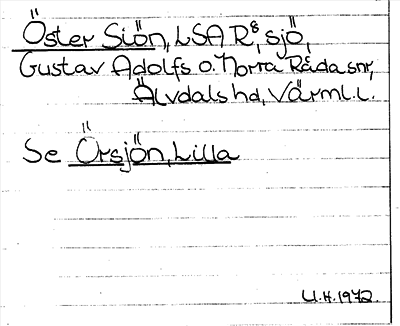 Öster Siön, LSA R⁸, sjö,
Gustav Adolfs o. Norra Råda snr,
Älvdals hd, Värml. l.
Se Örsjön, Lilla
U.H. 1972.